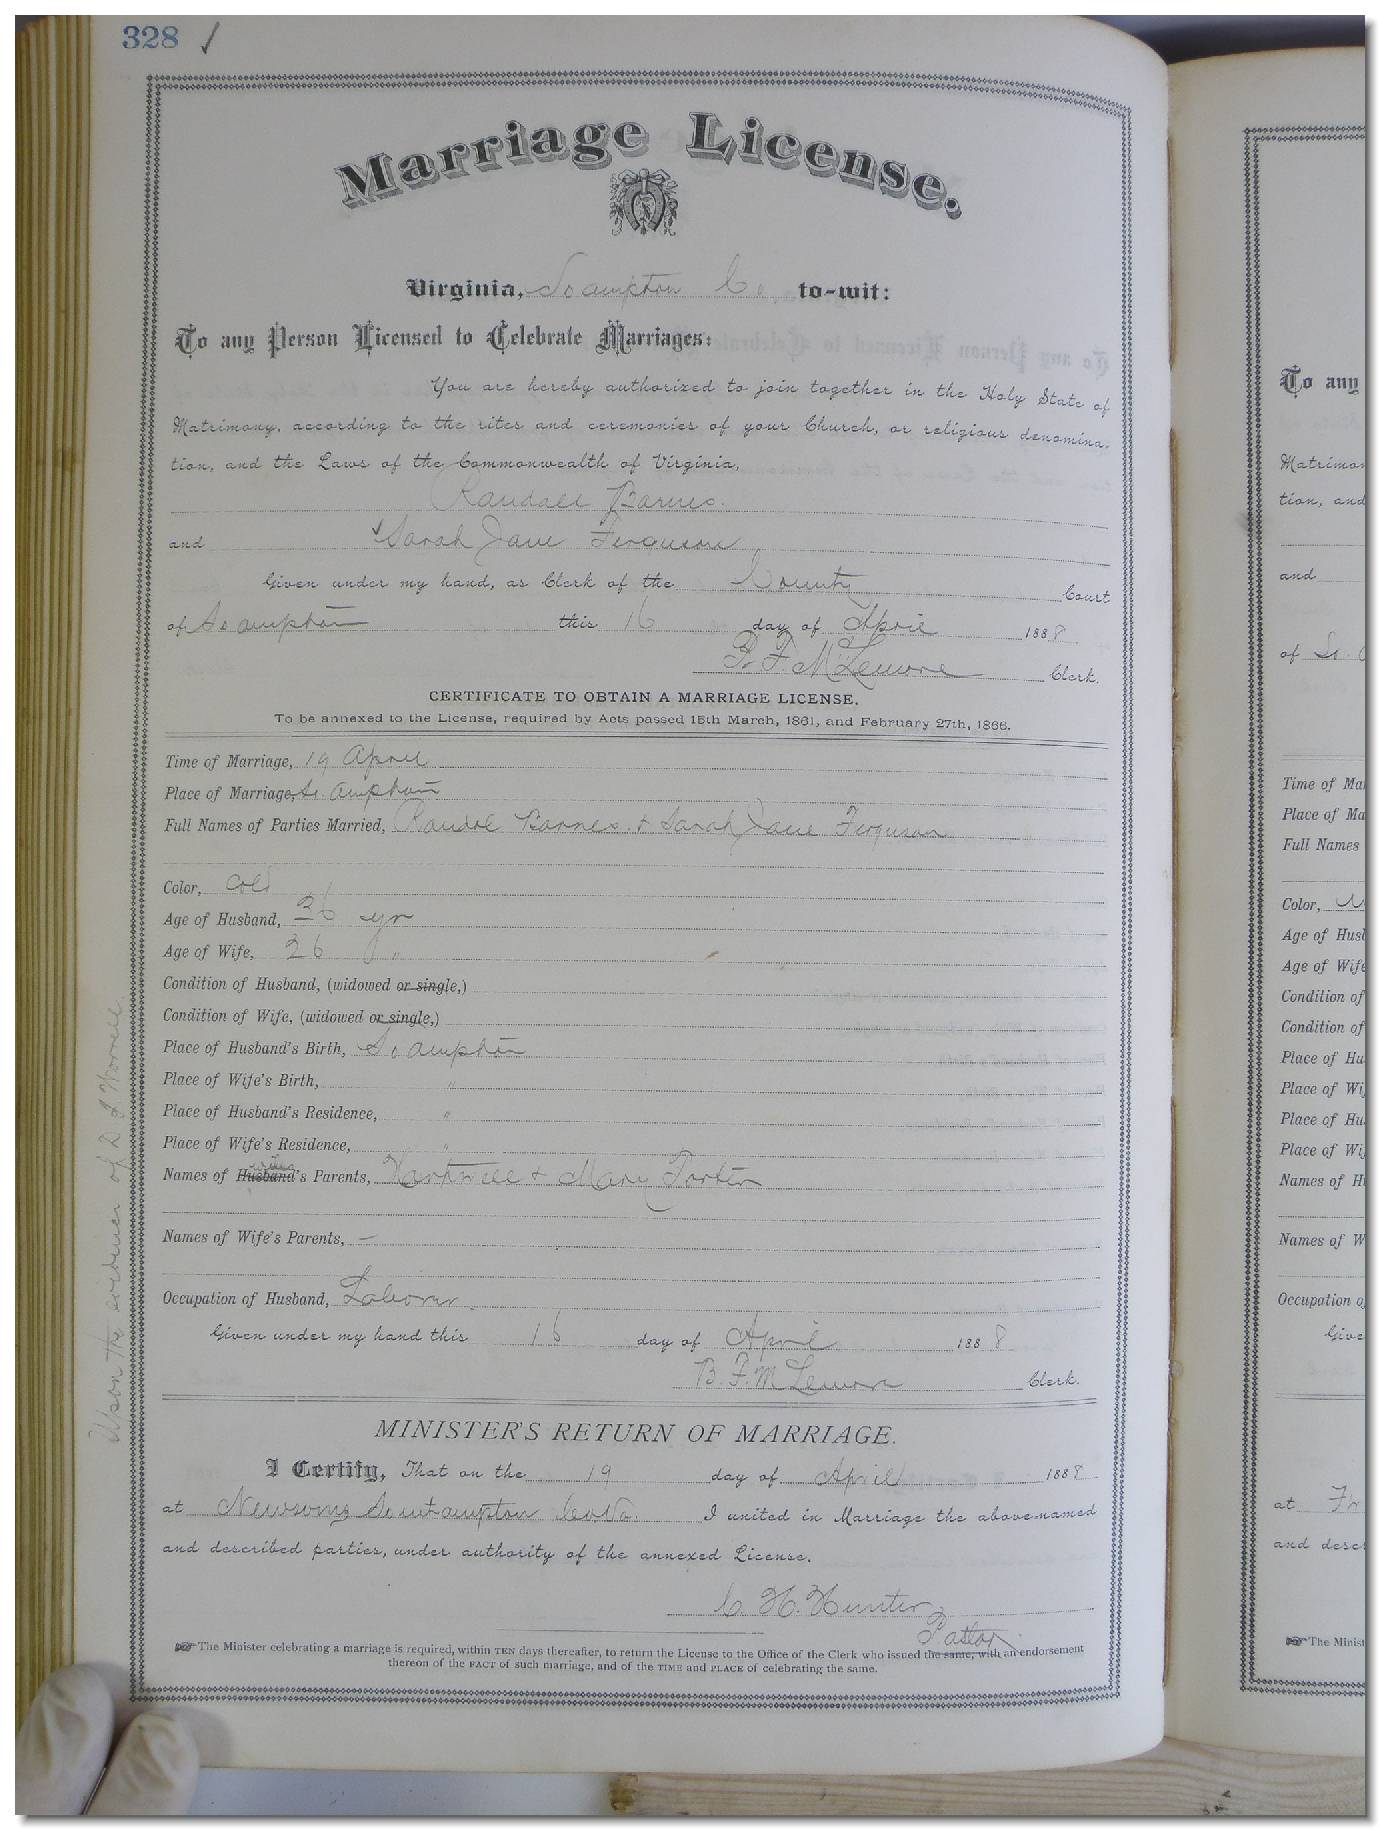 328 ✓
Marriage License.
Virginia, So ampton Co. to-wit:
To any Person Licensed to Celebrate Marriages:
You are hereby authorized to join together in the Holy State of
Matrimony, according to the rites and ceremonies of your Church, or religious denomina-
tion, and the Laws of the Commonwealth of Virginia,
Randall Barnes
and Sarah Jane Ferguson
Given under my hand, as Clerk of the County Court
of So ampton this 16 day of April 1888
B. F. McLemore Clerk.
CERTIFICATE TO OBTAIN A MARRIAGE LICENSE.
To be annexed to the License, required by Acts passed 15th March, 1861, and February 27th, 1866.
Time of Marriage, 19 April
Place of Marriage, So. ampton
Full Names of Parties Married, Randol Barnes & Sarah Jane Ferguson
Color, Cold
Age of Husband, 36 yr
Age of Wife, 26 "
Condition of Husband, (widowed or single,)
Condition of Wife, (widowed or single,)
Place of Husband's Birth, So ampton
Place of Wife's Birth, "
Place of Husband's Residence, "
Place of Wife's Residence, "
wifes
Names of Husband's Parents, Hartwell & Mary Porter
Names of Wife's Parents, —
Occupation of Husband, Laborer.
Given under my hand this 16 day of April 1888
B. F. McLemore Clerk.
MINISTER'S RETURN OF MARRIAGE.
I Certify, That on the 19 day of April 1888
at Newsoms Southampton Co Va. I united in Marriage the above-named
and described parties, under authority of the annexed License.
C. H. Hunter
Pastor
The Minister celebrating a marriage is required, within TEN days thereafter, to return the License to the Office of the Clerk who issued the same, with an endorsement
thereon of the FACT of such marriage, and of the TIME and PLACE of celebrating the same.
Upon the evidence of D J Worrell
To any
Matrimon
tion, and
and
of So.
Time of Ma
Place of Ma
Full Names
Color,
Age of Husb
Age of Wife
Condition of
Condition of
Place of Hu
Place of Wi
Place of Hu
Place of Wi
Names of H
Names of W
Occupation o
Give
at Fr
and desc
The Minist